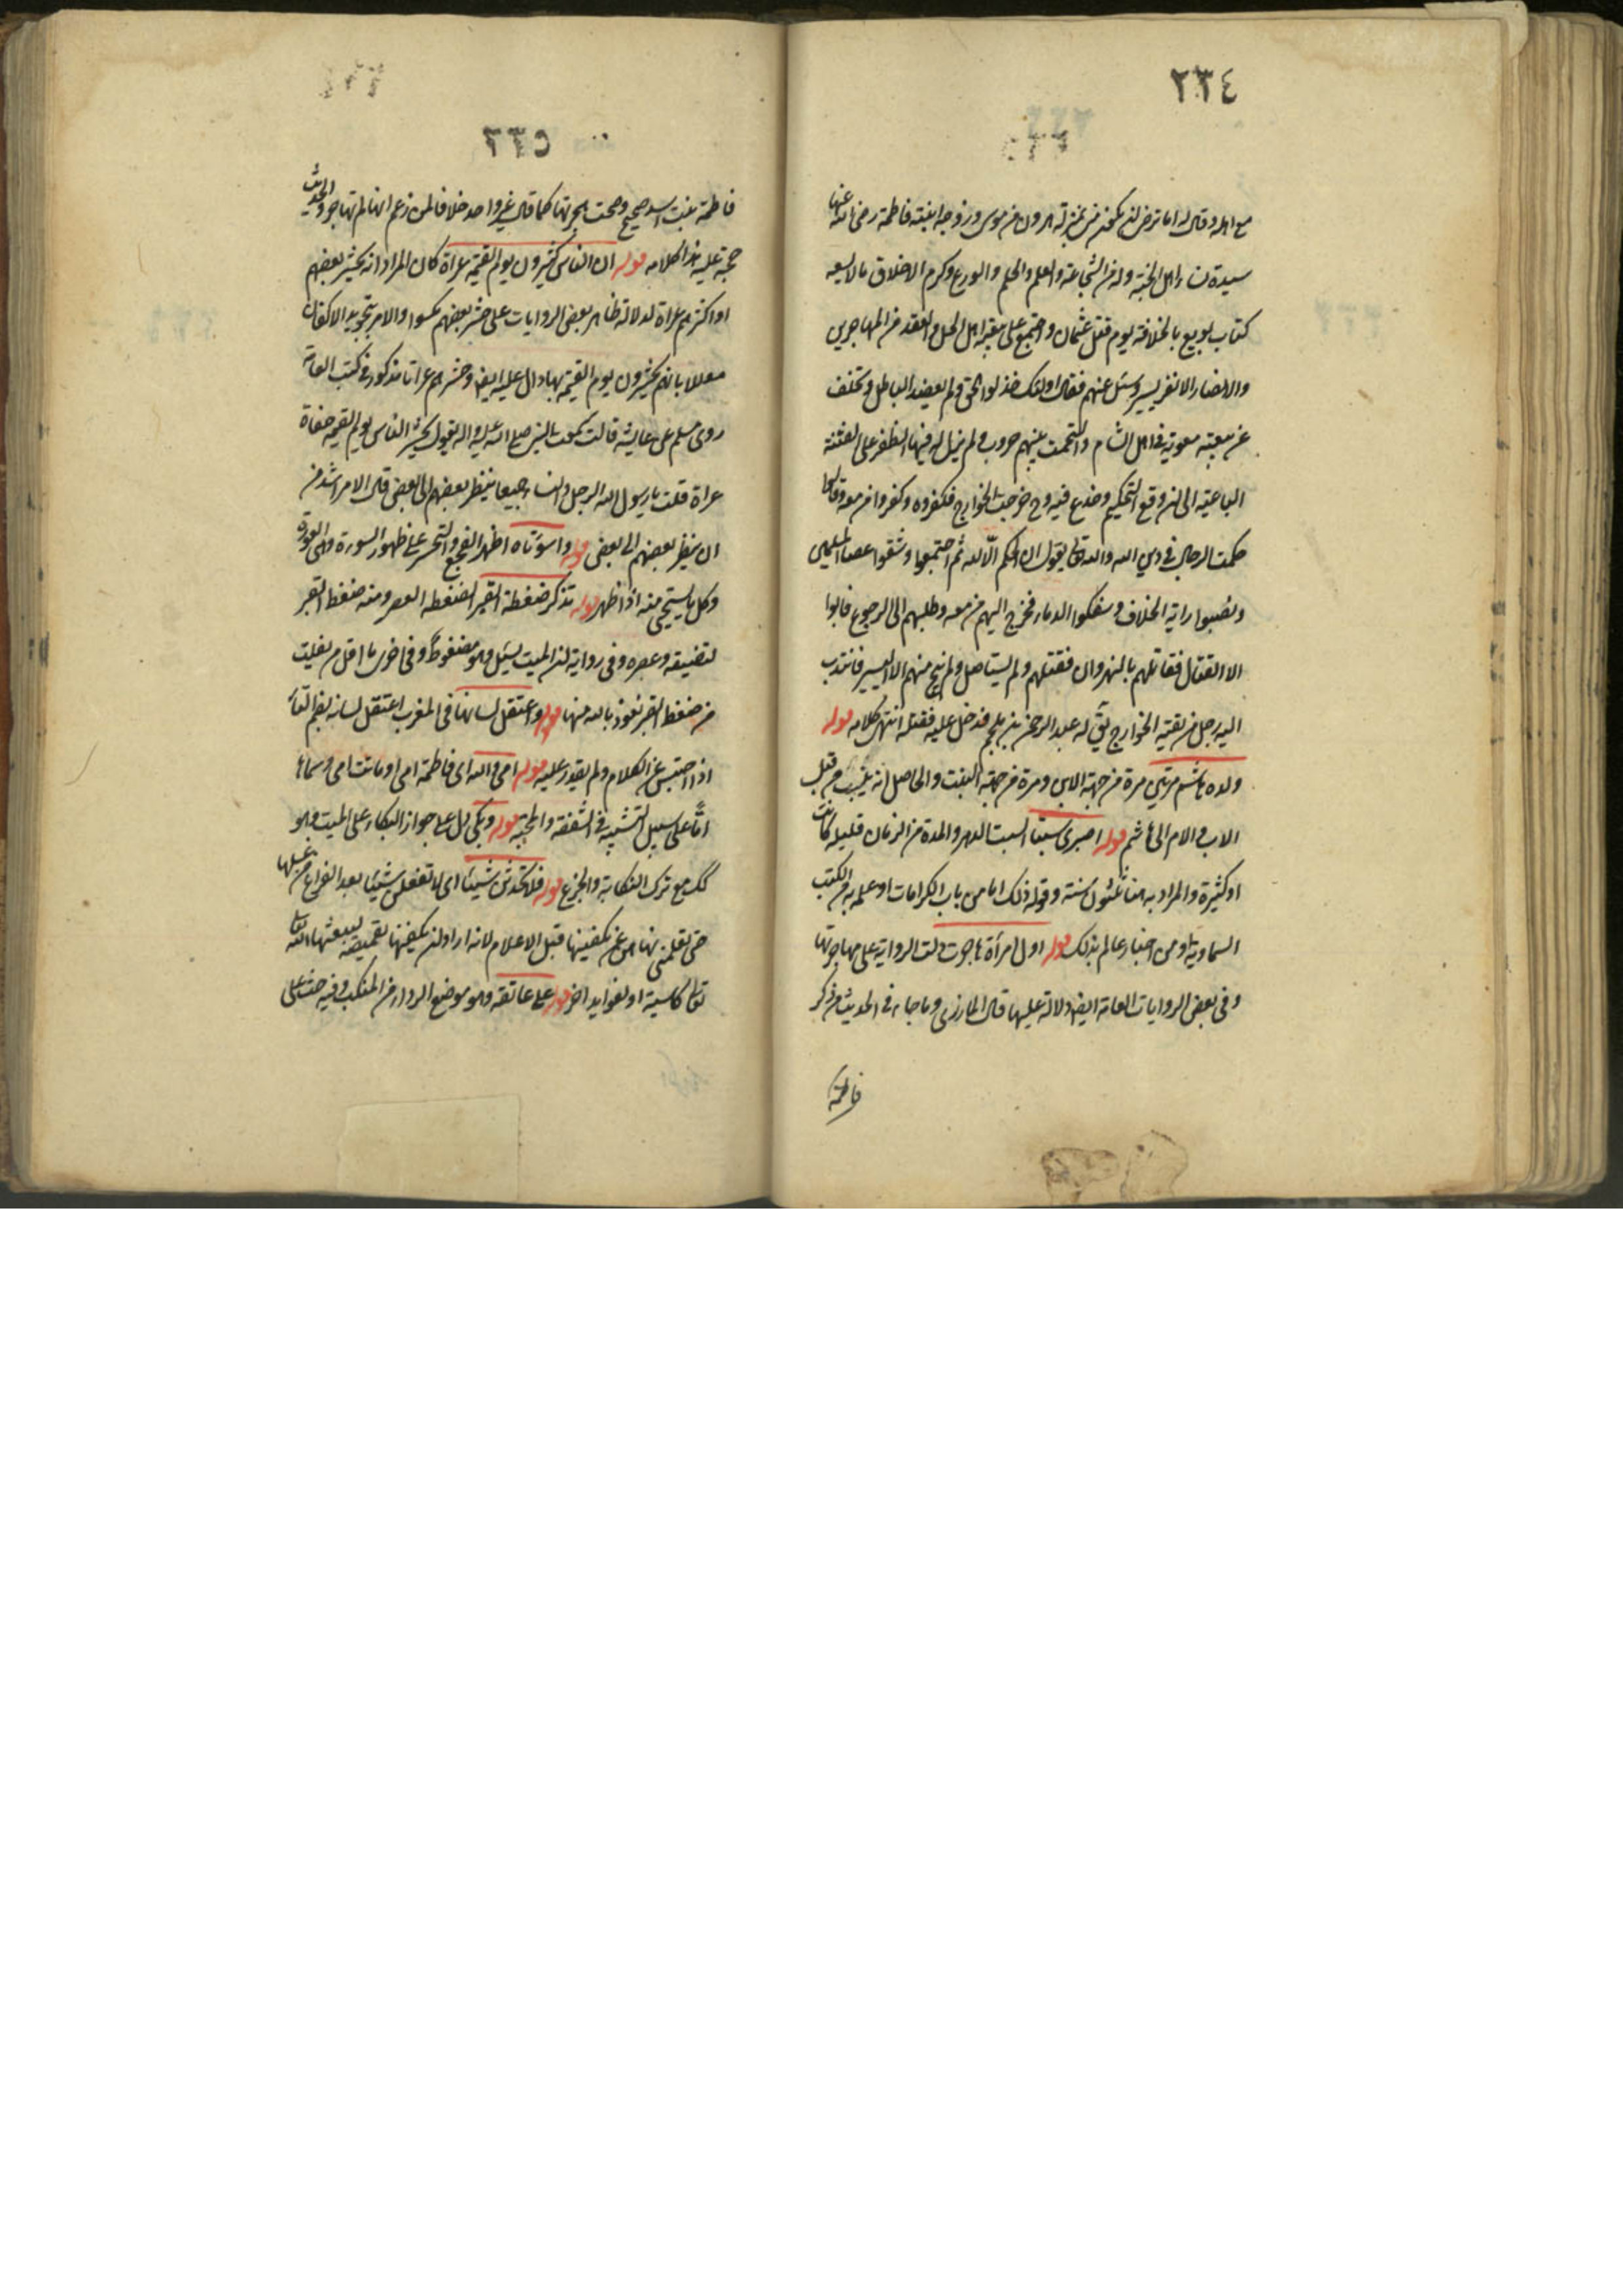 ٢٣٤
مع اهله وقال له اما ترضى ان تكون منى بمنزلة هرون من موسى وزوجه ابنته فاطمة رضى الله عنها
سيدة نساء اهل الجنة وله من الشجاعة والعلم والحلم والورع وكرم الاخلاق ما لا يسعه
كتاب بويع بالخلافة يوم قتل عثمان واجتمع على بيعته اهل الحل والعقد من المهاجرين
والانصار الا نفر يسير وسئل عنهم فقال اولئك خذلوا الحق ولم يعضدوا الباطل وتخلف
عن بيعته معوية فى اهل الشام والتحمت بينهم حروب ولم يزل له فيها الظفر على الفئة
الباغية الى ان وقع التحكيم وخدع فيه وح خرجت الخوارج فكفروه وكفروا من معه وقالوا
حكمت الرجال فى دين الله والله تعالى يقول ان الحكم الّا لله ثم اجتمعوا وشقوا عصا المسلمين
ونصبوا راية الخلاف وسفكوا الدماء فخرج اليهم من معه وطلبهم الى الرجوع فابوا
الا القتال فقاتلهم بالنهروان فقتلهم ولم يستاصل ولم ينج منهم الا اليسير فانتدب
اليه رجل من بقية الخوارج يق له عبد الرحمن بن ملجم فدخل عليه فقتله انتهى كلامه قوله
ولده هاشم مرتين مرة من جهة الاب ومرة من جهة البنت والحاصل انه ينسب من قبل
الاب والام الى هاشم قوله اصبرى سبتا السبت الدهر والمدة من الزمان قليلة كانت
او كثيرة والمراد به هنا ثلثون سنة وقوله ذلك اما من باب الكرامات او علمه به من الكتب
السماوية او من اخبار عالم بذلك قوله اول امرأة هاجرت دلت الرواية على مهاجرتها
وفى بعض الروايات العامة ايضا دلالة عليها قال المازرى وما جاء فى الحديث من ذكر
فاطمة
٢٣٥
فاطمة بنت اسد صحيح وصحت هجرتها كما قال غير واحد خلافا لمن زعم انها لم تهاجر والحديث
حجة عليه هذا كلامه قوله ان الناس يحشرون يوم القيمة عراة كان المراد انه يحشر بعضهم
او اكثرهم عراة لدلالة ظاهر بعض الروايات على حشر بعضهم مكسوا والامر بتجويد الاكفان
معللا بانهم يحشرون يوم القيمة بها دال عليه ايضا وحشرهم عراتا مذكور فى كتب العامة
روى مسلم عن عايشه قالت سمعت النبى صلى الله عليه واله يقول يحشر الناس يوم القيمة حفاة
عراة قلت يا رسول الله الرجل والنساء جميعا ينظر بعضهم الى بعض قال الامر اشد من
ان ينظر بعضهم الى بعض قوله واسوأتاه اظهر التفجع والتحسر على ظهور السورة وهى العورة
وكل ما يستحيى منه اذا ظهر قوله تذكر ضغطة القبر الضغطة العصر ومنه ضغط القبر
لتضيقه وعصره وفى رواية ان الميت يسئل وهو مضغوط وفى اخرى ما اقل من يفلت
من ضغط القبر نعوذ بالله منها قوله واعتقل لسانها فى المغرب اعتقل لسانه بضم التاء
اذا احتبس عن الكلام ولم يقدر عليه قوله امى والله اى فاطمة امى او ماتت امى وسماها
امًّا على سبيل التشبيه فى الشفقة والمحبة قوله وبكى دل على جواز البكاء على الميت وهو
كك مع ترك الشكاية والجزع قوله فلا تحدثن شيئا اى لا تفعلى شيئا بعد الفراغ من غسلها
حتى تعلمنى نهاهن عن تكفينها قبل الاعلام لانه اراد ان يكفنها بقميصه ليبعثها الله تعالى
تعالى كاسية او لفوايد اخر قوله على عاتقه وهو موضع الرداء من المنكب وفيه حث على